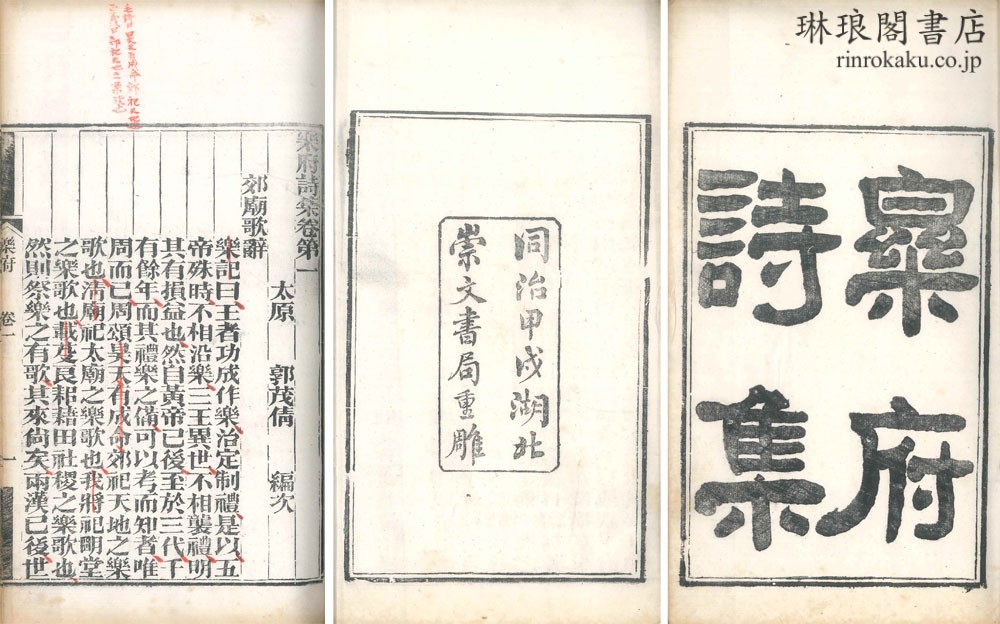 琳琅閣書店
rinrokaku.co.jp
樂府
詩集
同治甲戌湖北
崇文書局重雕
樂府詩集卷第一
太原 郭茂倩 編次
郊廟歌辭
樂記曰王者功成作樂治定制禮是以五
帝殊時不相沿樂三王異世不相襲禮明
其有損益也然自黃帝已後至於三代千
有餘年而其禮樂之備可以考而知者唯
周而已周頌昊天有成命郊祀天地之樂
歌也清廟祀太廟之樂歌也我將祀明堂
之樂歌也載芟良耜藉田社稷之樂歌也
然則祭樂之有歌其來尚矣兩漢已後世
樂府 卷一 一